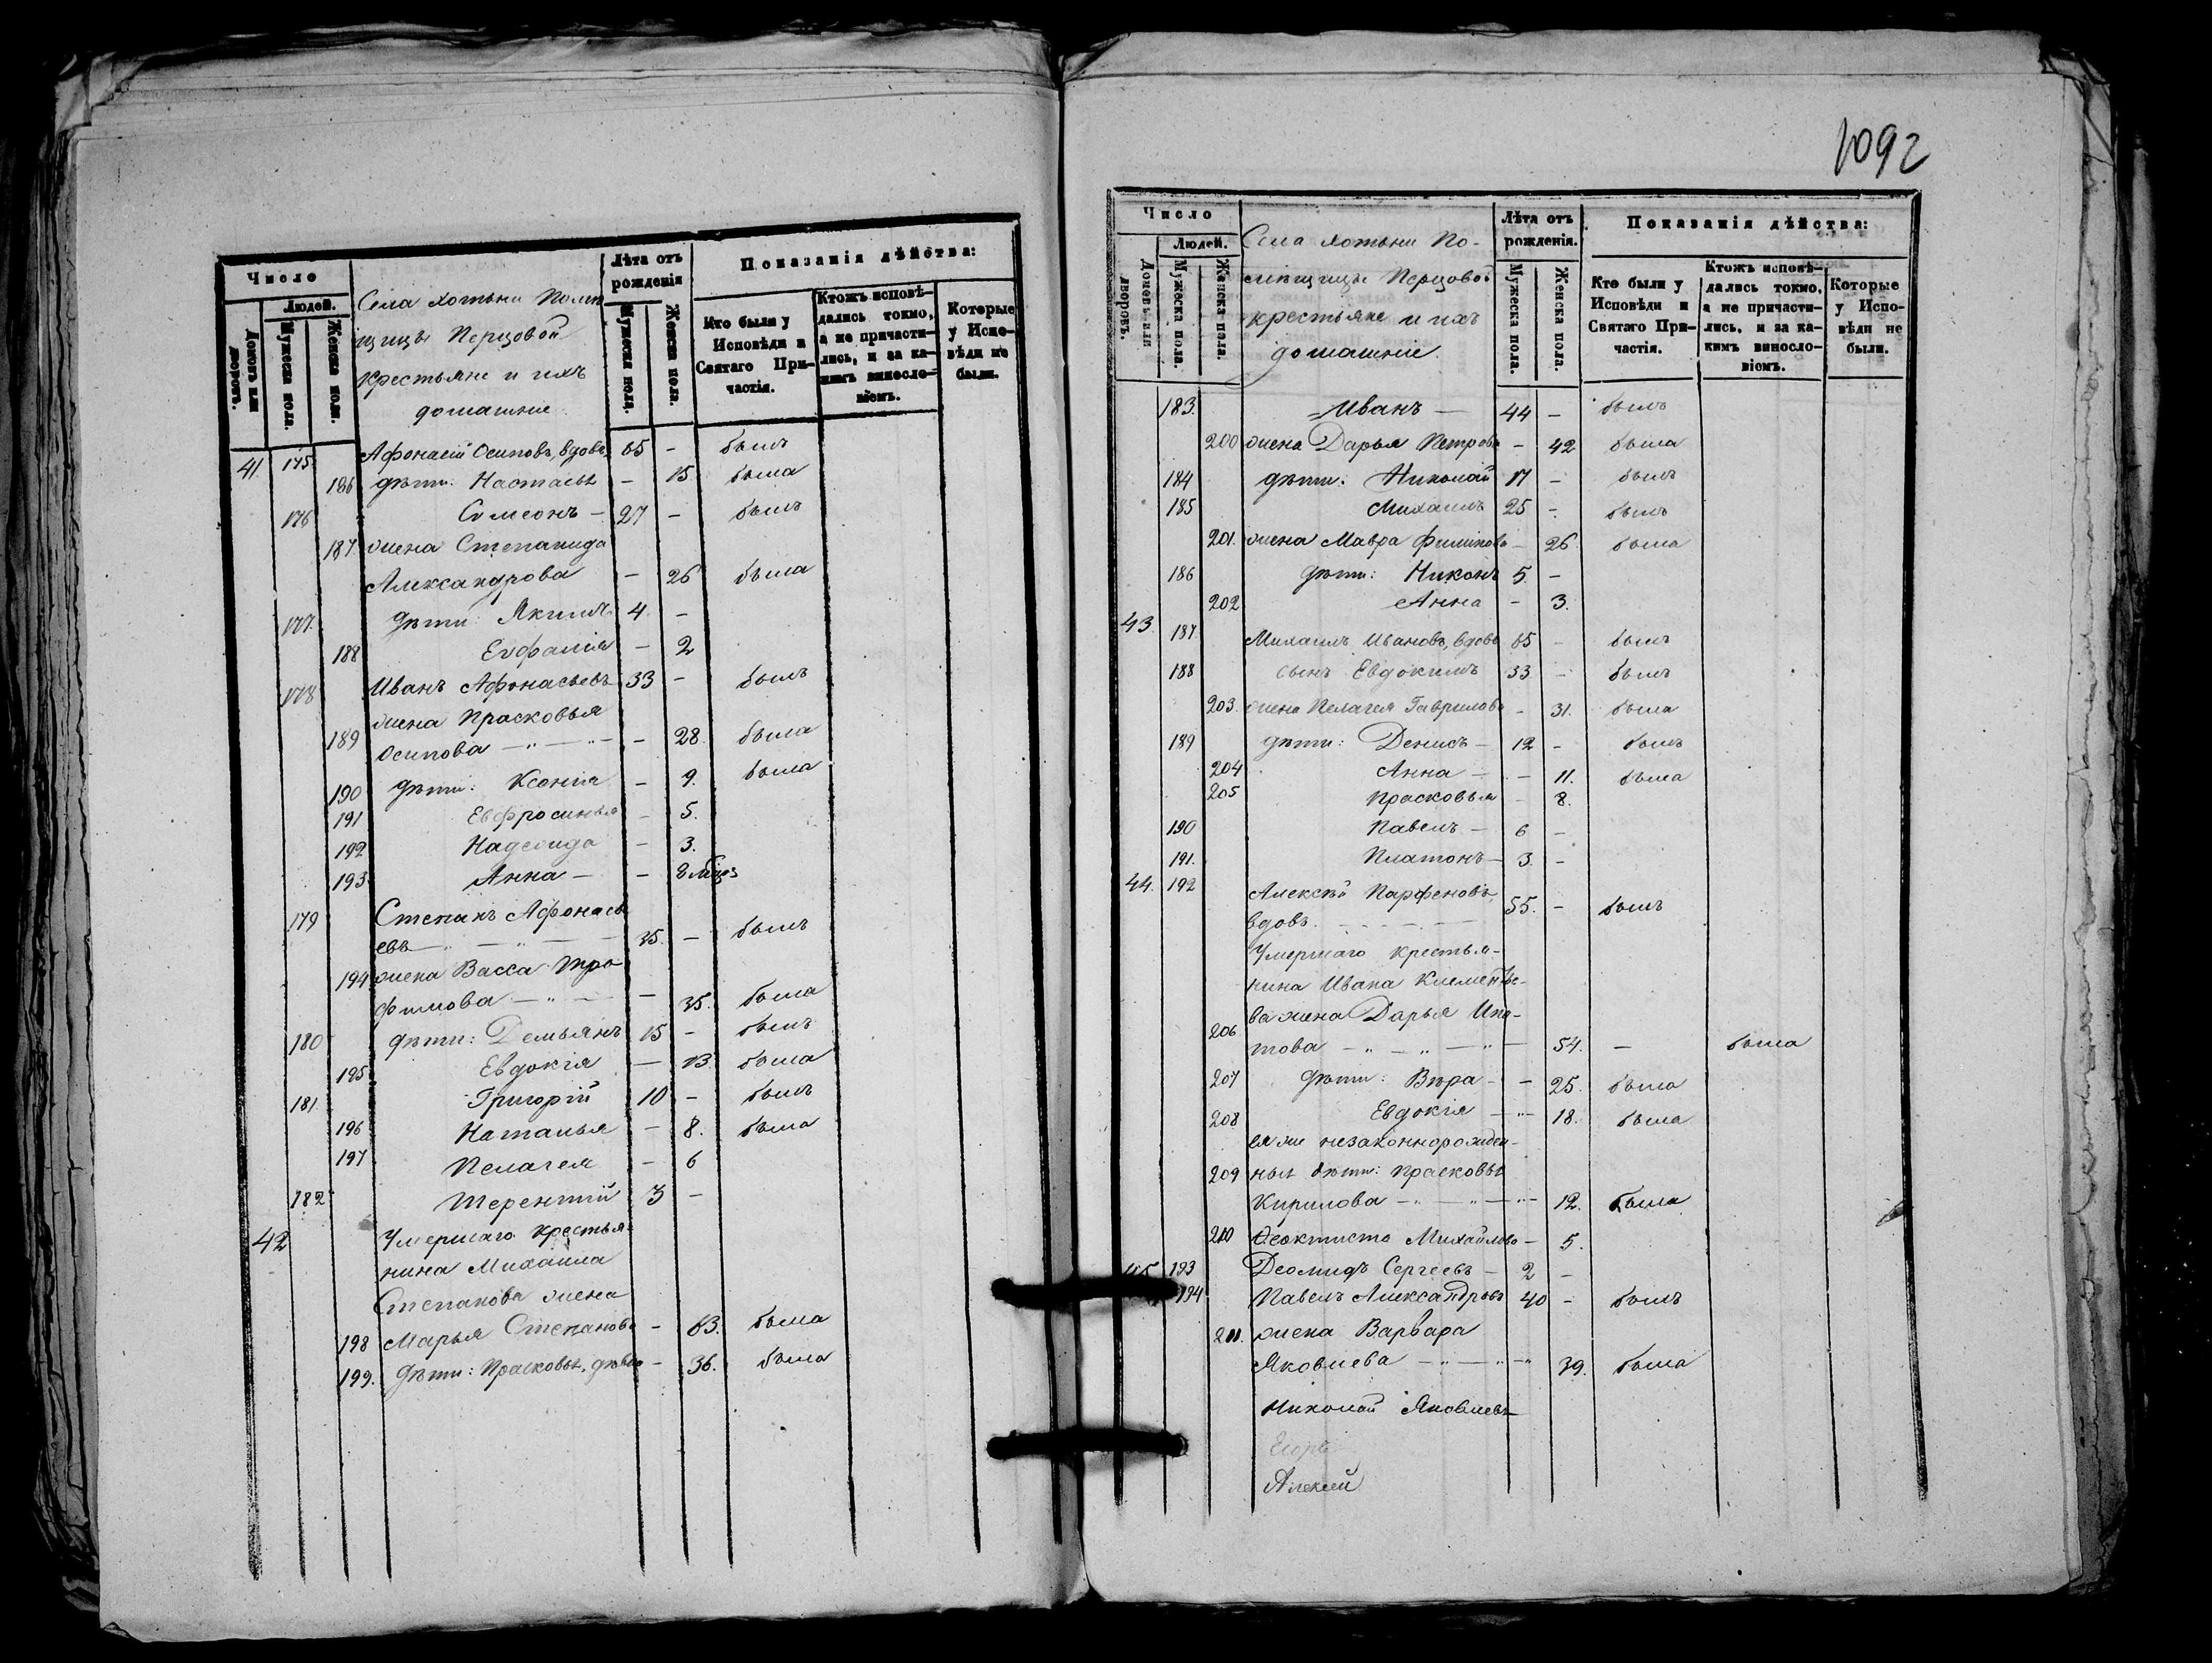 Число
Людей.
Домовъ или дворовъ.
Мужеска пола.
Женска пола.
Села Хотьни Помѣ
щицы Перцовой
крестьяне и ихъ
домашніе
Лѣта отъ рожденія
Мужеска пола.
Женска пола.
Показанія дѣйства:
Кто были у Исповѣди и Святаго Причастія.
Ктожъ исповѣдались токмо, а не причастились, и за какимъ винословіемъ.
Которые у Исповѣди не были.
41 175 Афонасій Осиповъ, вдовъ 65 - былъ
186 дѣти: Настасья - 15 была
176 Симеонъ - 27 - былъ
187 жена Степанида
Александрова - 26 была
177. дѣти Якимъ 4 -
188 Евфимія - 2
178 Иванъ Афонасьевъ 33 - былъ
жена Прасковья
189 Осипова - " - " - - 28 была
190 дѣти: Ксенія - 9. была
191 Евфросинья - 5.
192 - 3.
193 Анна - - 8 мѣс
179 Степанъ Афонась
евъ - " - " - 35. - былъ
194 жена Васса Тро
фимова - " - - 35. была
180 дѣти: Демьянъ 15 - былъ
195 Евдокія - 13 была
181 Григорій 10 - былъ
196 Наталья - 8. была
197 Пелагея - 6
182 Терентій 3 -
42 Умершаго крестья-
нина Михаила
Степанова жена
198 Марья Степанова - 63. была
199. дѣти: Прасковья, дѣвка - 36. была
1092
Число
Людей.
Домовъ или дворовъ.
Мужеска пола.
Женска пола.
Села Хотьни По-
мѣщицы Перцовой
крестьяне и ихъ
домашніе
Лѣта отъ рожденія.
Мужеска пола.
Женска пола.
Показанія дѣйства:
Кто были у Исповѣди и Святаго Причастія.
Ктожъ исповѣдались токмо, а не причастились, и за какимъ винословіемъ.
Которые у Исповѣди не были.
183. Иванъ - 44 - былъ
200 жена Дарья Петрова - 42 была
184 дѣти: Николай 17 - былъ
185 Михаилъ 25 - былъ
201. жена Мавра Филипова - 26 была
186 дѣти: Никонъ 5 -
202 Анна - 3.
43 187 Михаилъ Ивановъ, вдовъ 65 - былъ
188 сынъ Евдокимъ 33 - былъ
203. жена Пелагея Гаврилова - 31. была
189 дѣти: Денисъ - 12 - былъ
204 Анна - - 11. была
205 Прасковья - 8.
190 Павелъ - 6 -
191. Платонъ - 3. -
44. 192 Алексѣй Парфеновъ,
вдовъ. - - - - 55. - былъ
Умершаго крестья-
нина Ивана Клементье-
ва жена Дарья Ипа-
206 това - " - " - " - 54. - была
207 дѣти: Вѣра - - 25. была
208 Евдокія - " - 18. была
ея же незаконнорожден-
209 ныя дѣти: Прасковья
Кирилова - " - " - " - 12. была
210 Феоктиста Михайлова - 5.
45 193 Деомидъ Сергеевъ - 2 -
194 Павелъ Александровъ 40 - былъ
211. жена Варвара
Яковлева - " - " - " 39. была
Николай Яковлевъ
Алексѣй